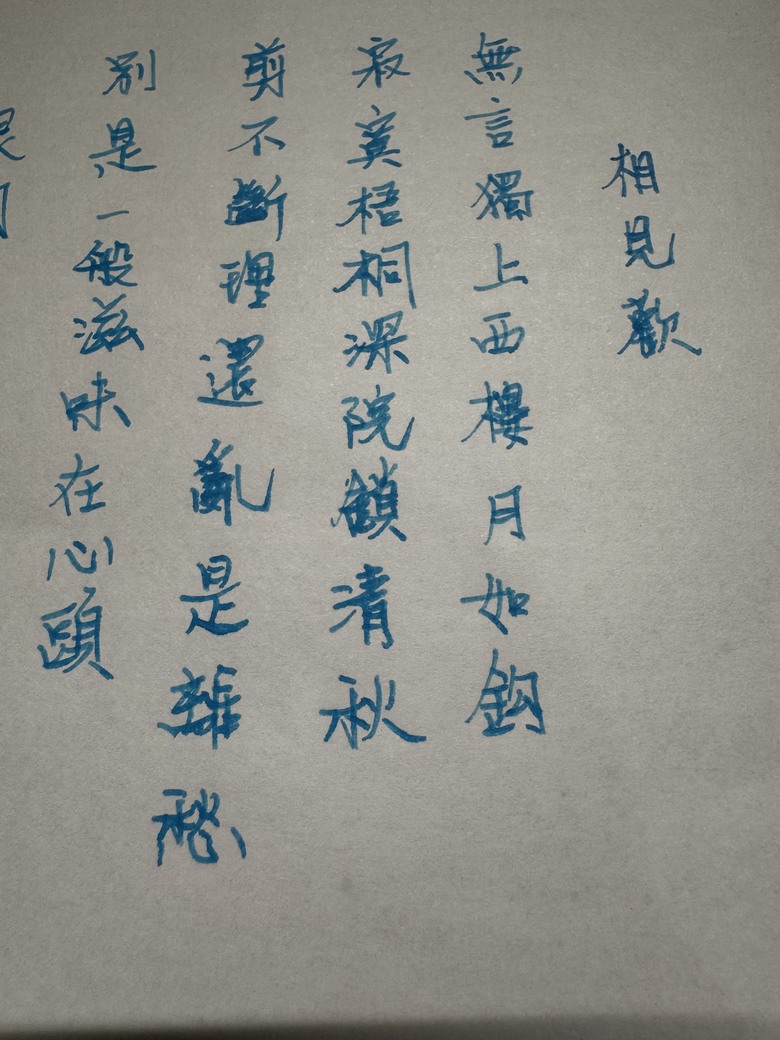 相見歡
無言獨上西樓月如鈎
寂寞梧桐深院鎖清秋
剪不斷理還亂是離愁
別是一般滋味在心頭